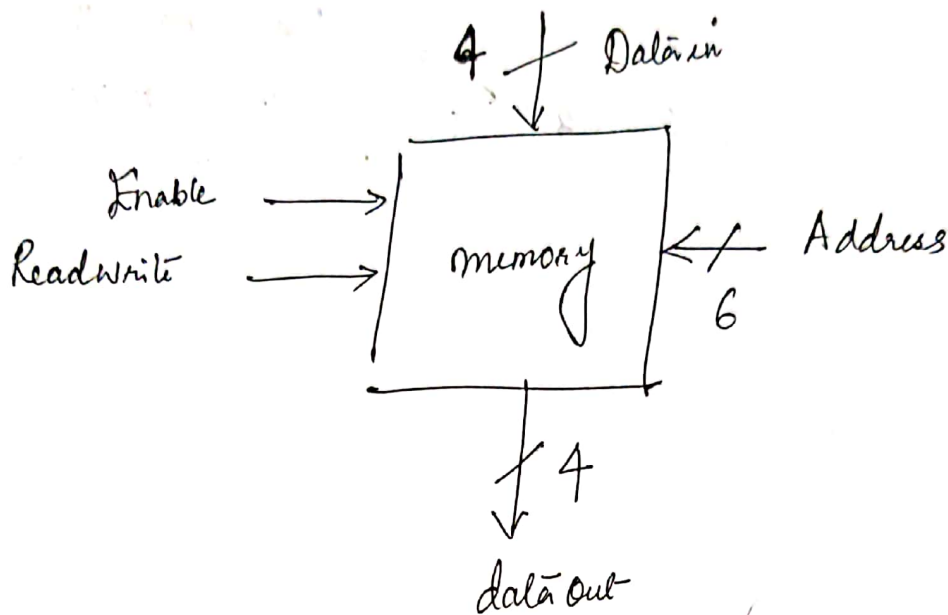 4 Data in
Enable
Readwrite
memory
Address
6
4
data out